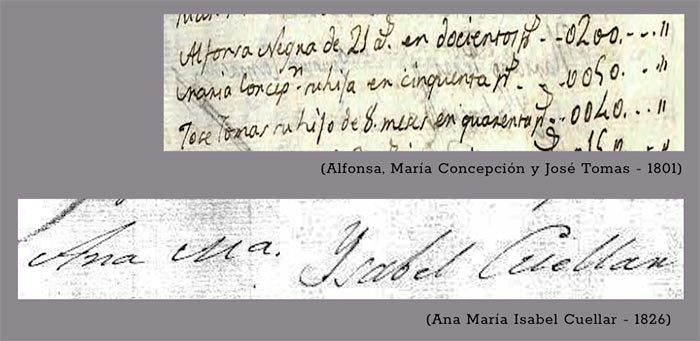 Alfonsa Negra de 21 a.s en docientos p.s - - 0200. - - - "
Maria Concep.n su hija en cinquenta p.s - - 0050. - - "
Jose Tomas su hijo de 8. meses en quarenta p.s - - 0040. - - "
(Alfonsa, María Concepción y José Tomas - 1801)
Ana Ma. Ysabel Cuellar
(Ana María Isabel Cuellar - 1826)